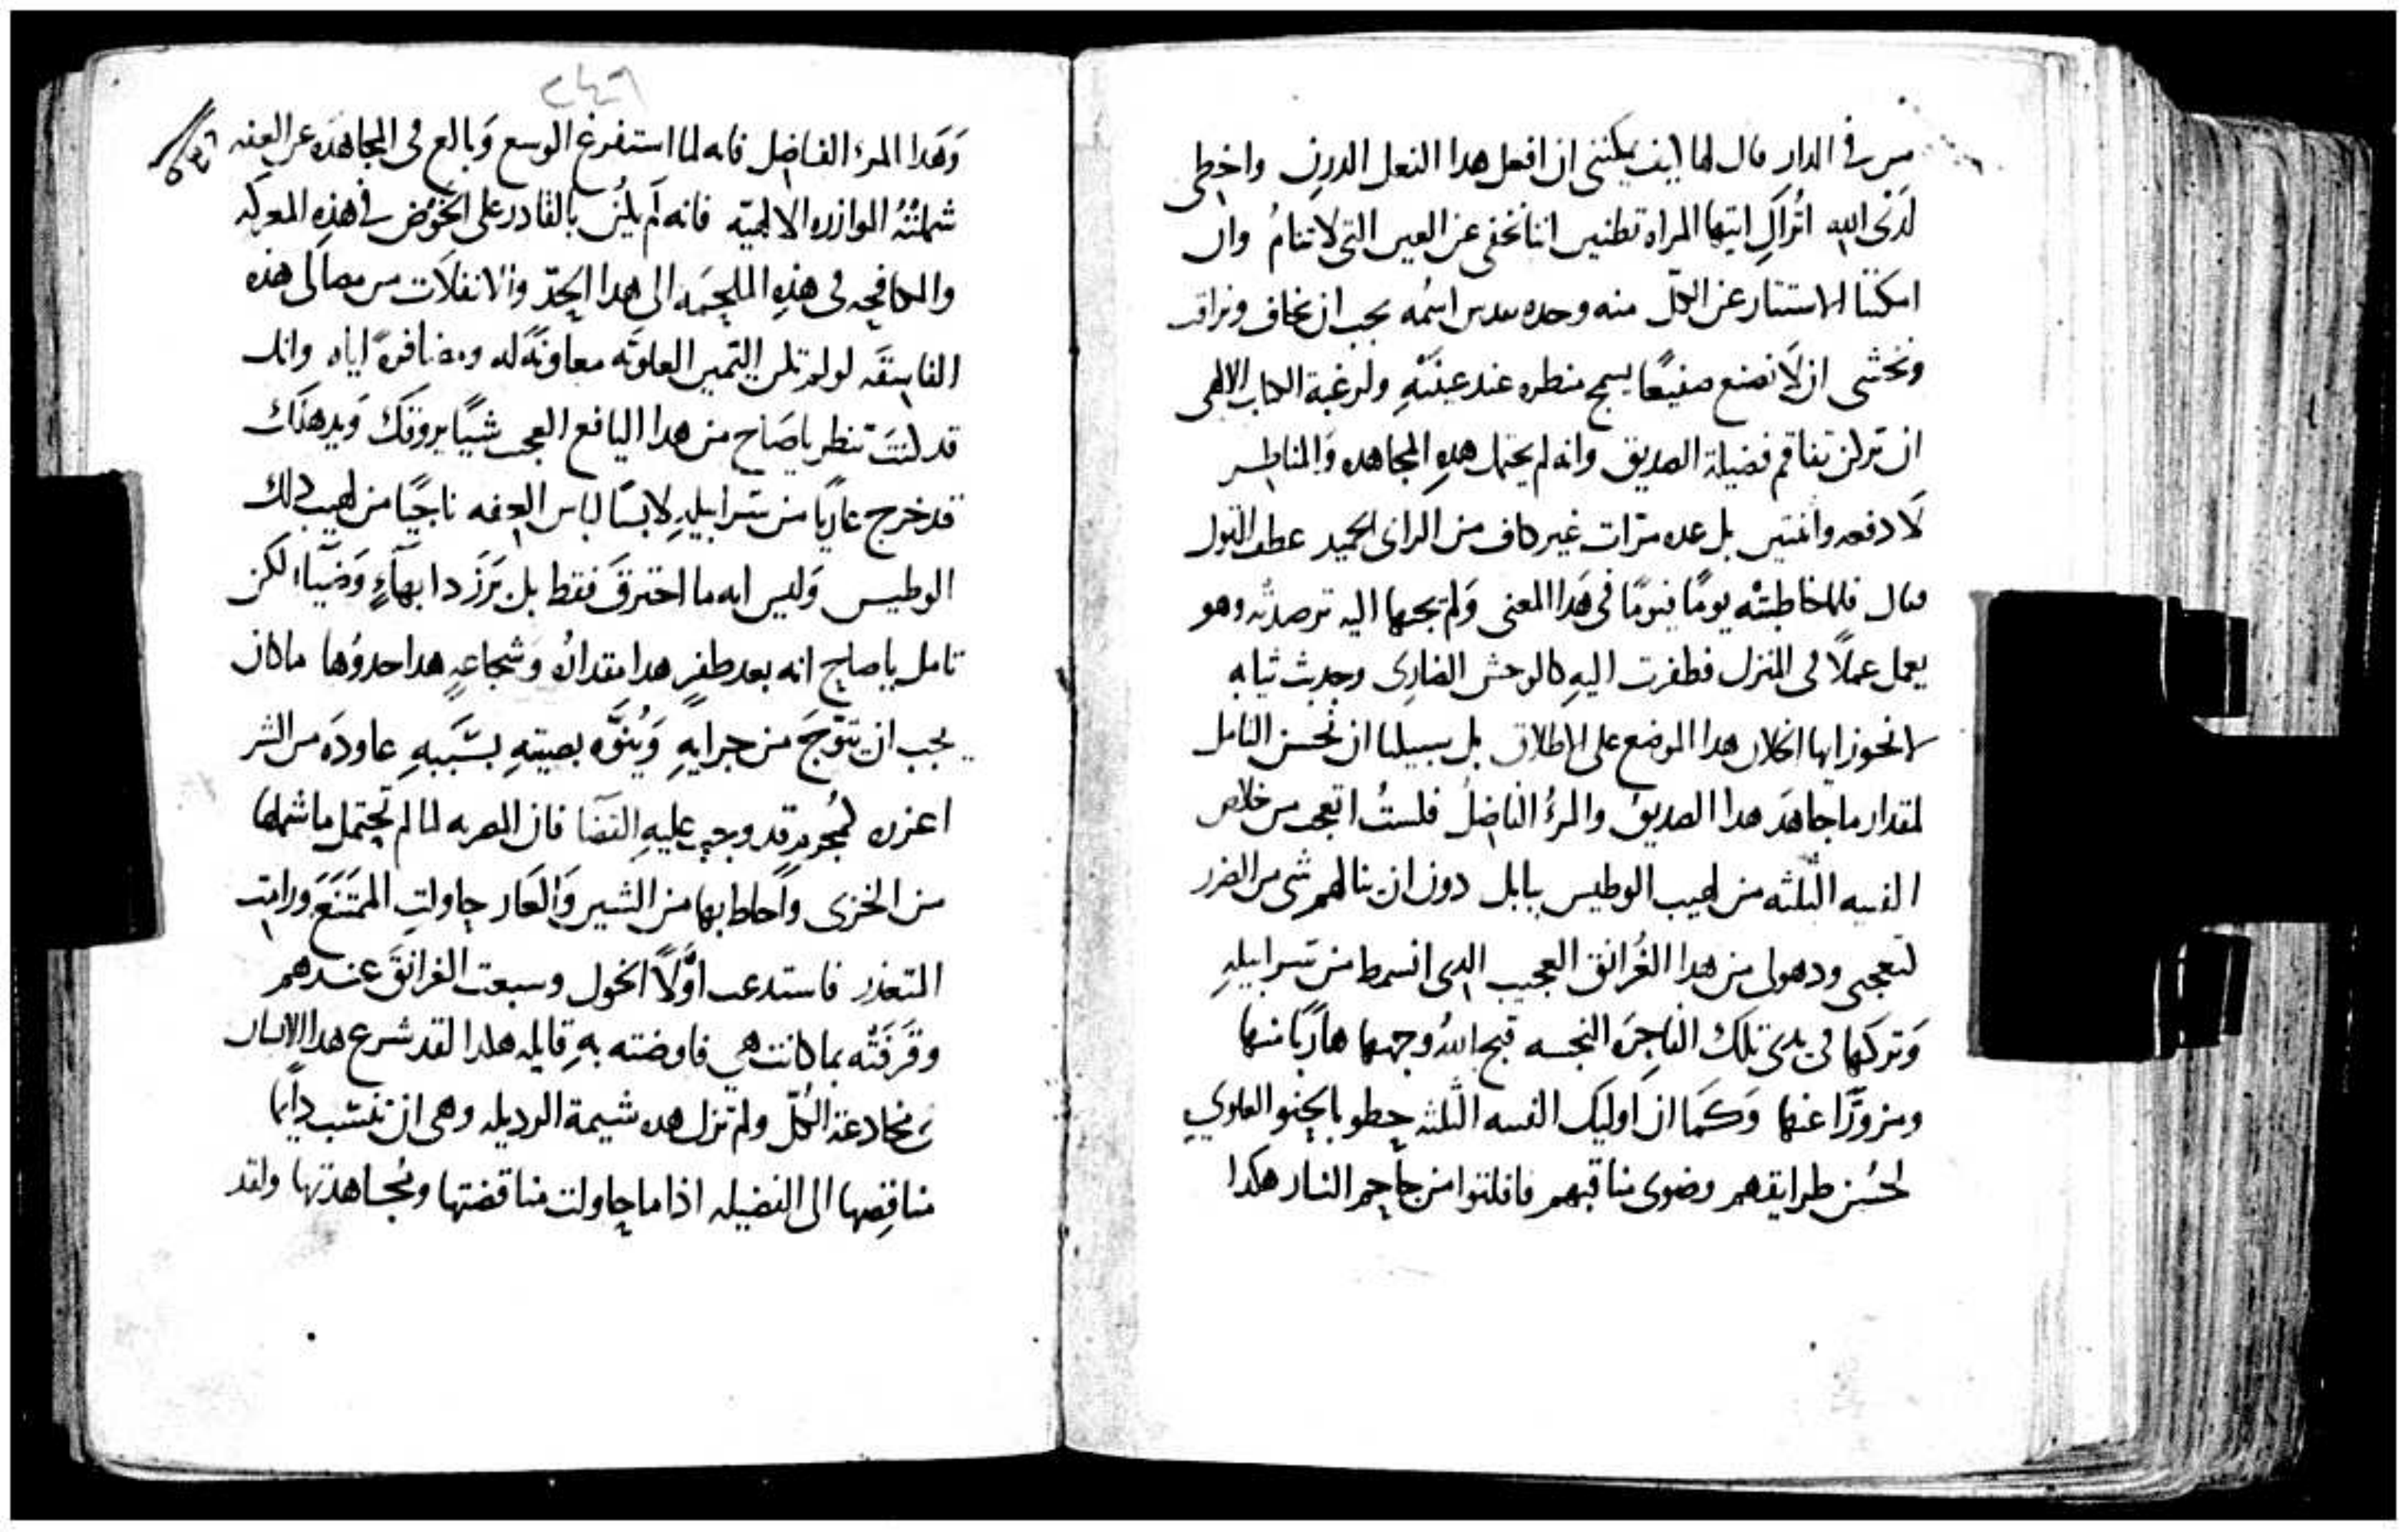 من في الدار قال لها كيف يمكنني ان افعل هدا الفعل الدرن واخطي
لدى الله اتراكِ ايتها المراه تظنين اننا نخفى عن العين التي لا تنامُ وان
امكننا الاستتار عن الكلّ منه وحده يجب ان نخاف ونراقب
ونخشى ان لا نصنع صنيعًا يسمج منظره عند عينَيْهِ ولرغبة الكتاب الالهي
ان تفاقم فضيلة الصديق وانه لم يحتمل هدهِ المجاهده والمناظر
لا دفعه واثنتين بل عده مرّات غير كاف من الراي الحميد عطف القول
فقال فلما خاطبتْه يومًا فيومًا في هَدا المعنى وَلم يجبها اليه ترصدتْه وهو
يعمل عملًا في المنزل فطفرت اليهِ كالوحش الضارى وجدبت ثيابه
لا نجوز ايها الخلان هدا الموضع على الاطلاق بل سبيلنا ان نحسن التامل
لمقدار ما جاهدَ هدا الصديق والمرءُ الفاضلُ فلستُ اتعجب من خلاص
الفتيه الثلثه من لهيب الوطيس ببابل دون ان ينالهم شي من الضرر
كتعجبى ودهولى من هدا الغُرانق العجيب الدى انسمط من سرابيلهِ
وَتركها في يدى تلك الفاجِرَه النجسه قبح اللهُ وجهها هاربًا منها
ومزورًّا عنها وَكمَا ان اوليك الفتيه الثلثه حظوا بالحنو العلوي
لحُسن طرايقهم وضوى مناقبهم فافلتوا من جاحم النار هكدا
وَهَدا المرء الفاضل فانه لما استفرغ الوسع وَبالغ في المجاهده عن العفه
شملتْهُ الموازره الالهيّه فانه لم يكُن بالقادر على الخَوْض في هذِهِ المعركه
والمكافحه في هذِهِ الملحمَه الى هدا الحَدّ والانفلات من مصالى هذه
الفاسقَه لو لم تكن اليمين العلويَّه معاونَةً له ومضافرةً اياه وانك
قد كنتَ تنظر ياصَاح من هدا اليافع العجب شيًا يروقكَ وَيدهلكَ
قد خرج عاريًا من سَرابيلهِ لابسًا لباس العفه ناجيًا من لهيب دلك
الوطيس وَليس انه ما احترقَ فقط بل بَرَزَ دا بهآءٍ وَضيآء لكن
تامل ياصاح انه بعد ظفرٍ هدا مقدارُه وَشجاعهٍ هدا حدوُها ما كان
يجب ان يتوّجَ من جرايهِ وَيُنوَّه بصيتهِ بسَببهِ عاودَه من الشر
اعزره لمُجرمٍ قد وجب عليهِ القضَا فان المصريه لما لم تحتمل ما شملها
من الخزى وَاحاط بها من الشين وَالعَار حاولتِ الممتنعَ ورامت
المتعذر فاستدعت اوَّلًا الخول وسبعت الغرانقَ عندهم
وقرَفَتْه بما كانت هي فاوضته بهِ قايله هلدا لقد شرع هدا الانسان
في مخادعة الكلّ ولم تزل هده شيمة الرديله وهى ان تنسب دايمًا
مناقِصها الى الفضيله اذا ما حاولت مناقضتها ومُجاهدتها ولقد